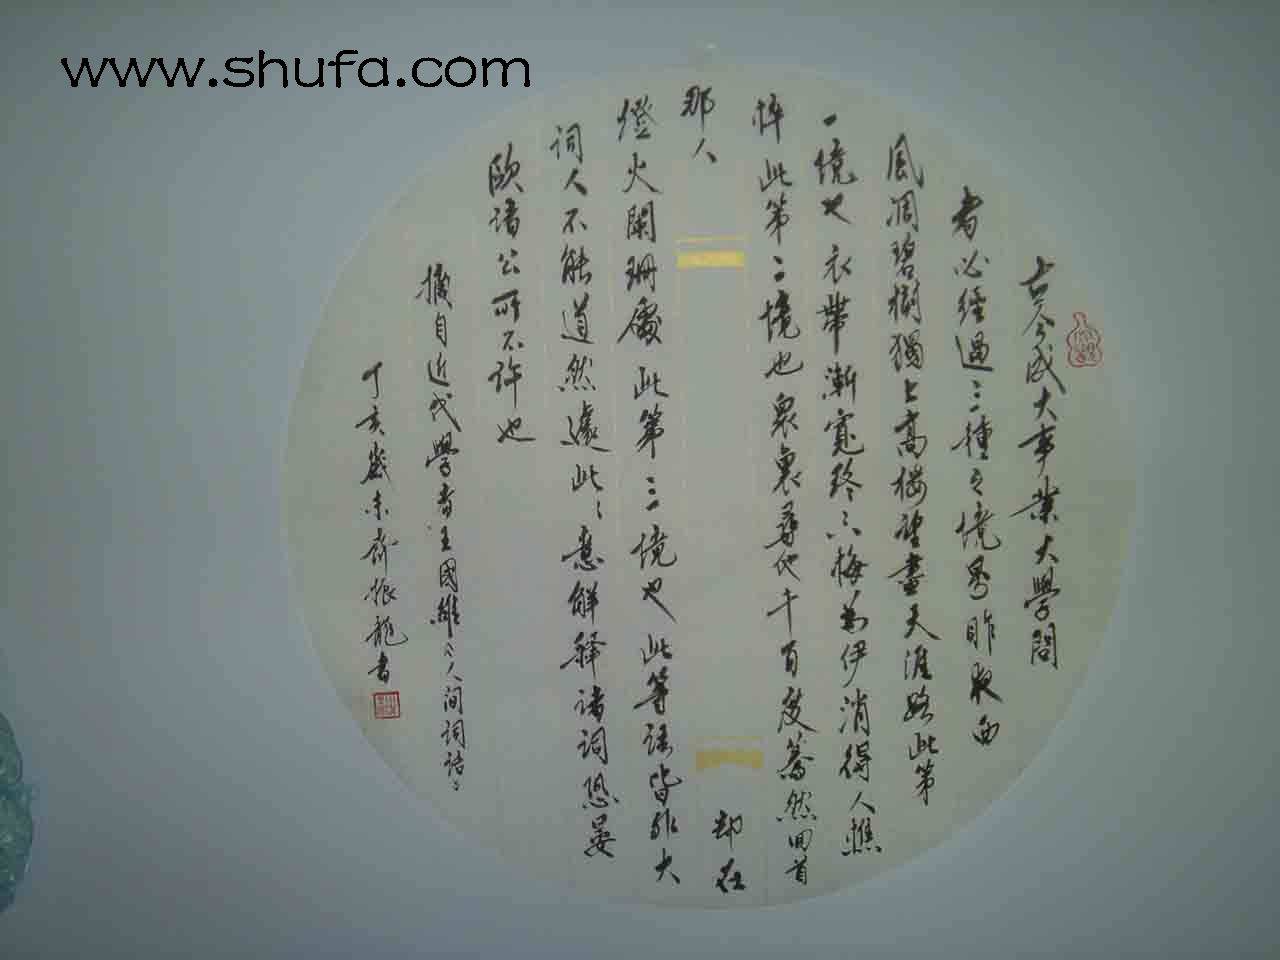 www.shufa.com
古今成大事業大學問
者必經過三種之境界昨夜西
風凋碧樹獨上高樓望盡天涯路此第
一境也衣帶漸寬終不悔為伊消得人憔
悴此第二境也衆裏尋他千百度驀然回首
那人却在
燈火闌珊處此第三境也此等語皆非大
詞人不能道然遽此意解釋諸詞恐晏
歐諸公所不許也
摘自近代學者王國維《人间詞話》
丁亥歲末齊振龍書